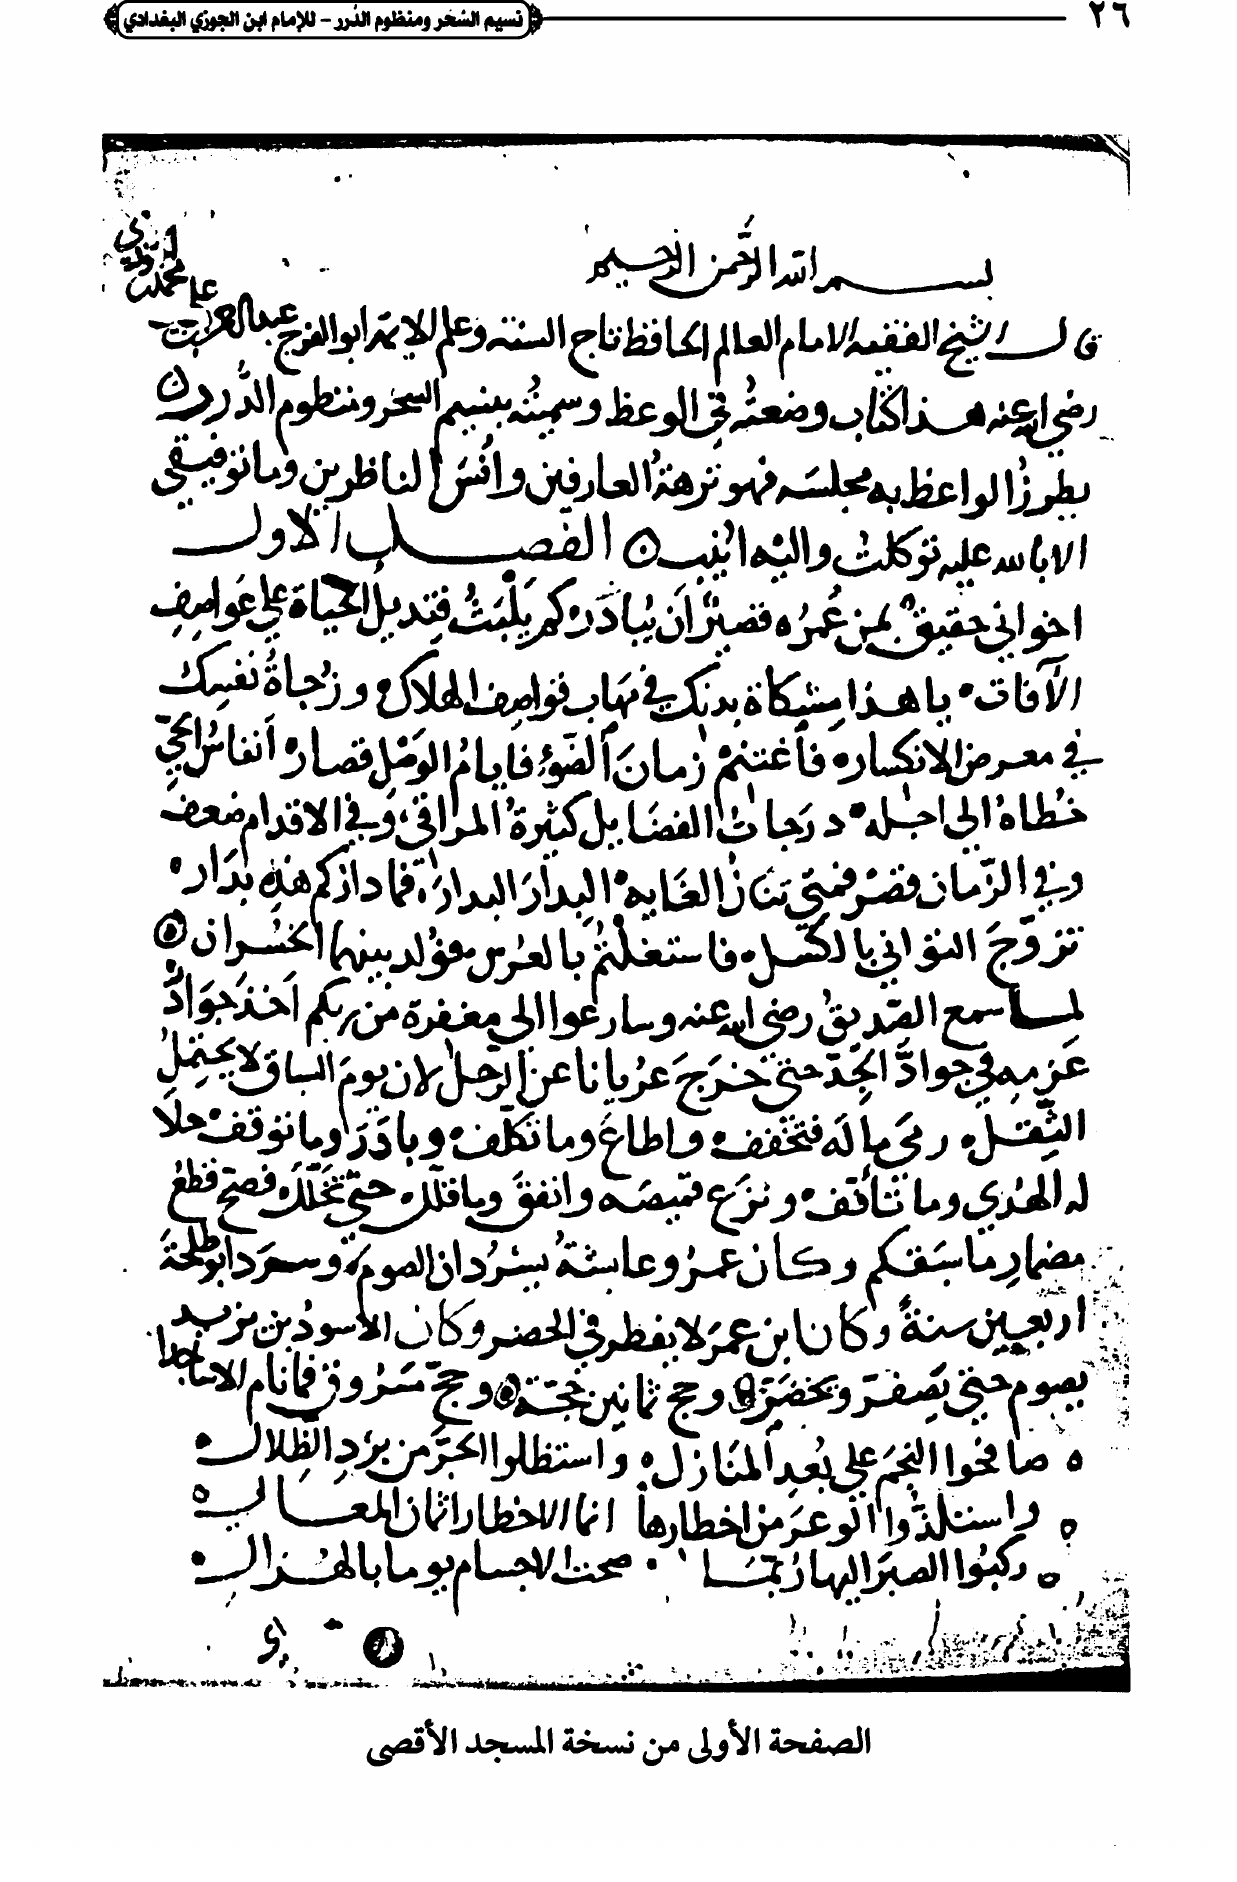 ٢٦
نسيم السَّحَر ومنظوم الدُّرر - للإمام ابن الجوزي البغدادي
بسم الله الرحمن الرحيم
قال الشيخ الفقيه الامام العالم الحافظ تاج السنه وعلم الايمه ابو الفرج عبد الرحمن بن علي بن محمد بن الجوزي
رضي الله عنه هذا كتاب وضعتُه في الوعظ وسميتُه بنسيم السحَر ومنظوم الدُّرر
يطرزُ الواعظ به مجلسَه فهو نزهةُ العارفين وانُسَ الناظرين وما توفيقي
الا بالله عليه توكلتُ واليْه انُيب الفصل الاول
اخواني حقيقٌ بمن عُمرُه قصيرٌ أن يُبادَر كم يَلْبَثُ قنديلُ الحياة على عَواصِفِ
الآفات يا هذا مِشكاة بدنك في مهاب قواصِف الهلاك وزُجاةُ نفسِك
في معرض الانكسار فاغتنمْ زمانَ الضَّوْءِ فايامُ الوَصْل قصار أنفاسُ الحيّ
خُطاهُ الى اجله درجاتُ الفضايل كثيرةُ المراقي وفي الاقدام ضعف
وفي الزّمان قصَرٌ فمتى تنالُ الغَايه البِدارَ البدارَ فما داركم هذه بدَار
تزوّجَ التواني بالكسل فاشتغلتم بالعرس فوُلد بينهما الخسْران
لما سمع الصّديقُ رضي الله عنه وسارعوا الى مغفرة من ربكم أخذَ جوَادُ
عَزمِه في جوادّ الجِدّ حتى خرَجَ عرْيانا عن الرحل لان يومَ السباق لا يحتملُ
الثِّقل رمى ماله فتخفف واطاعَ وما تكلّف وبادَرَ وما توقف حلا
له الهُدي وما تأقف ونزَع قميصه وانفقَ وما قلل حتى تخلَّلَ فصحّ قطعُ
مضمارِ ما سبقكم وكان عمرُ وعايشةُ يسْرُدان الصوم وسرَد ابو طلحة
اربعين سنةً وكان ابن عمرَ لا يفطر في الحضر وكان الاسودُ بن يزيد
يصوم حتى يَصفرّ ويخضَرّ وحج ثمانين حجّة وحجّ مسْروق فما نام الا ساجدا
صافحوا النجمَ على بُعدِ المنَازل واستظلوا الحرَّ من بَرْدِ الظِلال
واستلذّوا الوعرَ من اخطارها انما الاخطار اثمان المعالي
ركبُوا الصبرَ اليها صحت الاجسام يوما بالهُزال
الصفحة الأولى من نسخة المسجد الأقصى